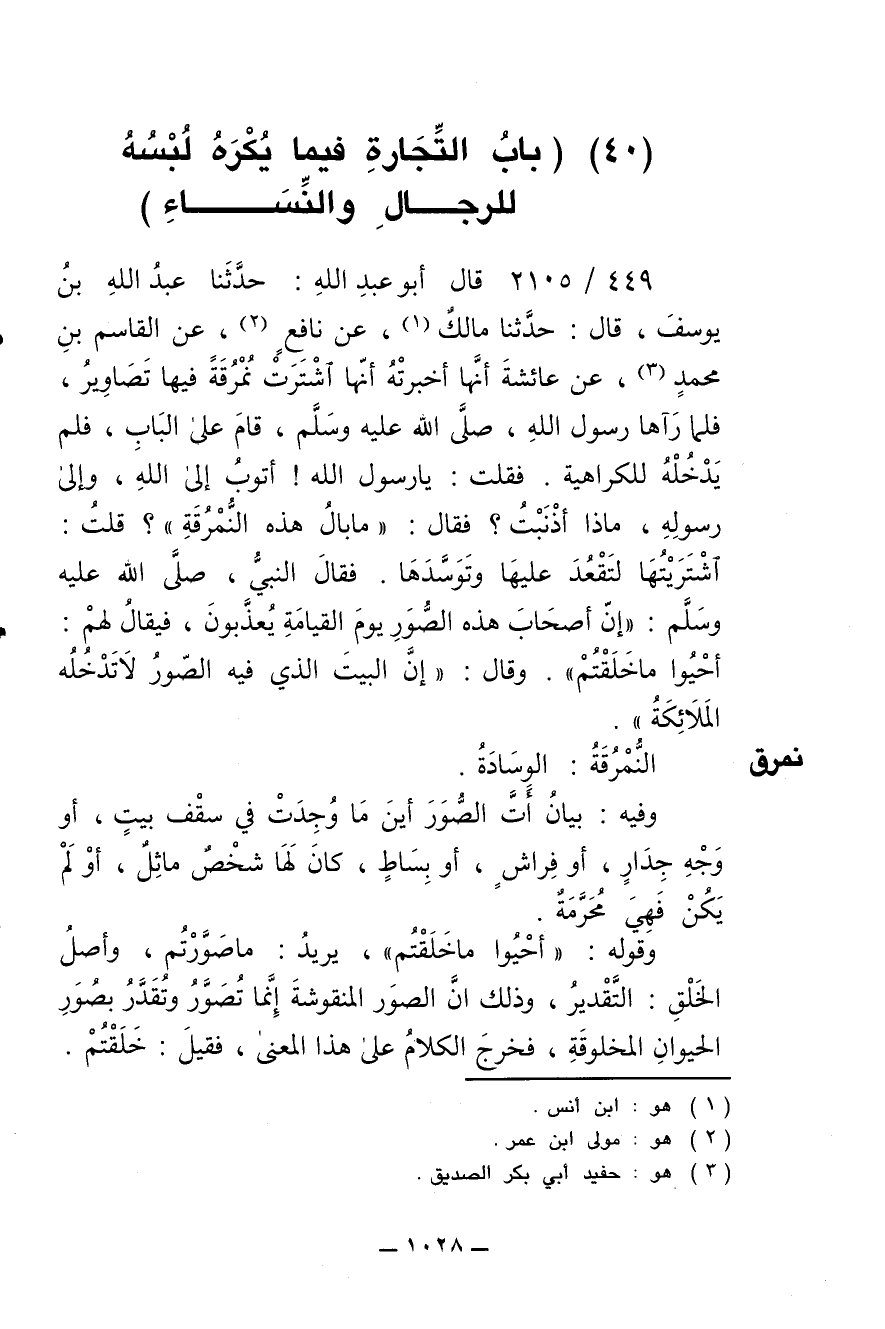 (٤٠) ( بابُ التِّجَارةِ فيما يُكْرَهُ لُبْسُهُ
للرجـــالِ والنِّسَـــــــاءِ )
٤٤٩ / ٢١٠٥ قال أبو عبدِ اللهِ : حدَّثَنا عبدُ اللهِ بنُ
يوسفَ ، قال : حدَّثنا مالكٌ (١) ، عن نافعٍ (٢) ، عن القاسم بنِ
محمدٍ (٣) ، عن عائشةَ أنَّها أخبرتْهُ أنّها ٱشْتَرَتْ نُمْرُقَةً فيها تَصَاوِيرُ ،
فلما رَآها رسول اللهِ ، صلَّى الله عليه وسَلَّم ، قامَ علىٰ البَابِ ، فلم
يَدْخُلْهُ للكراهية . فقلت : يارسول الله ! أتوبُ إلىٰ اللهِ ، وإلىٰ
رسولِهِ ، ماذا أذْنَبْتُ ؟ فقال : « مابالُ هذه النُّمْرُقَةِ » ؟ قلتُ :
ٱشْتَرَيْتُهَا لتَقْعُدَ عليهَا وتَوَسَّدَهَا . فقالَ النبيُّ ، صلَّى الله عليه
وسَلَّم : «إنّ أصحَابَ هذه الصُّوَرِ يومَ القيامَةِ يُعذَّبونَ ، فيقالُ لهمْ :
أحْيُوا ماخَلَقْتُمْ» . وقال : « إنَّ البيتَ الذي فيه الصّورُ لاَتَدْخُلُه
المَلَائِكَةُ » .
نمرق
النُّمْرُقَةُ : الوِسَادَةُ .
وفيه : بيانُ أَنَّ الصُّوَرَ أينَ مَا وُجِدَتْ في سقْف بيتٍ ، أو
وَجْهِ جِدَارٍ ، أو فِراشٍ ، أو بِسَاطٍ ، كانَ لَهَا شخْصٌ ماثِلٌ ، أوْ لَمْ
يَكُنْ فَهِيَ مُحَرَّمَةٌ .
وقوله : « أحْيُوا ماخَلَقْتُم» ، يريدُ : ماصَوَّرْتُم ، وأصلُ
الخَلْقِ : التَّقْديرُ ، وذلك انَّ الصوَر المنقوشةَ إنَّما تُصَوَّرُ وتُقَدَّرُ بصُوَرِ
الحيوانِ المخلوقَةِ ، فخرجَ الكلامُ علىٰ هذا المعنىٰ ، فقيلَ : خَلَقْتُمْ .
( ١ ) هو : ابن أنس .
( ٢ ) هو : مولى ابن عمر .
( ٣ ) هو : حفيد أبي بكر الصديق .
ـ ١٠٢٨ ـ